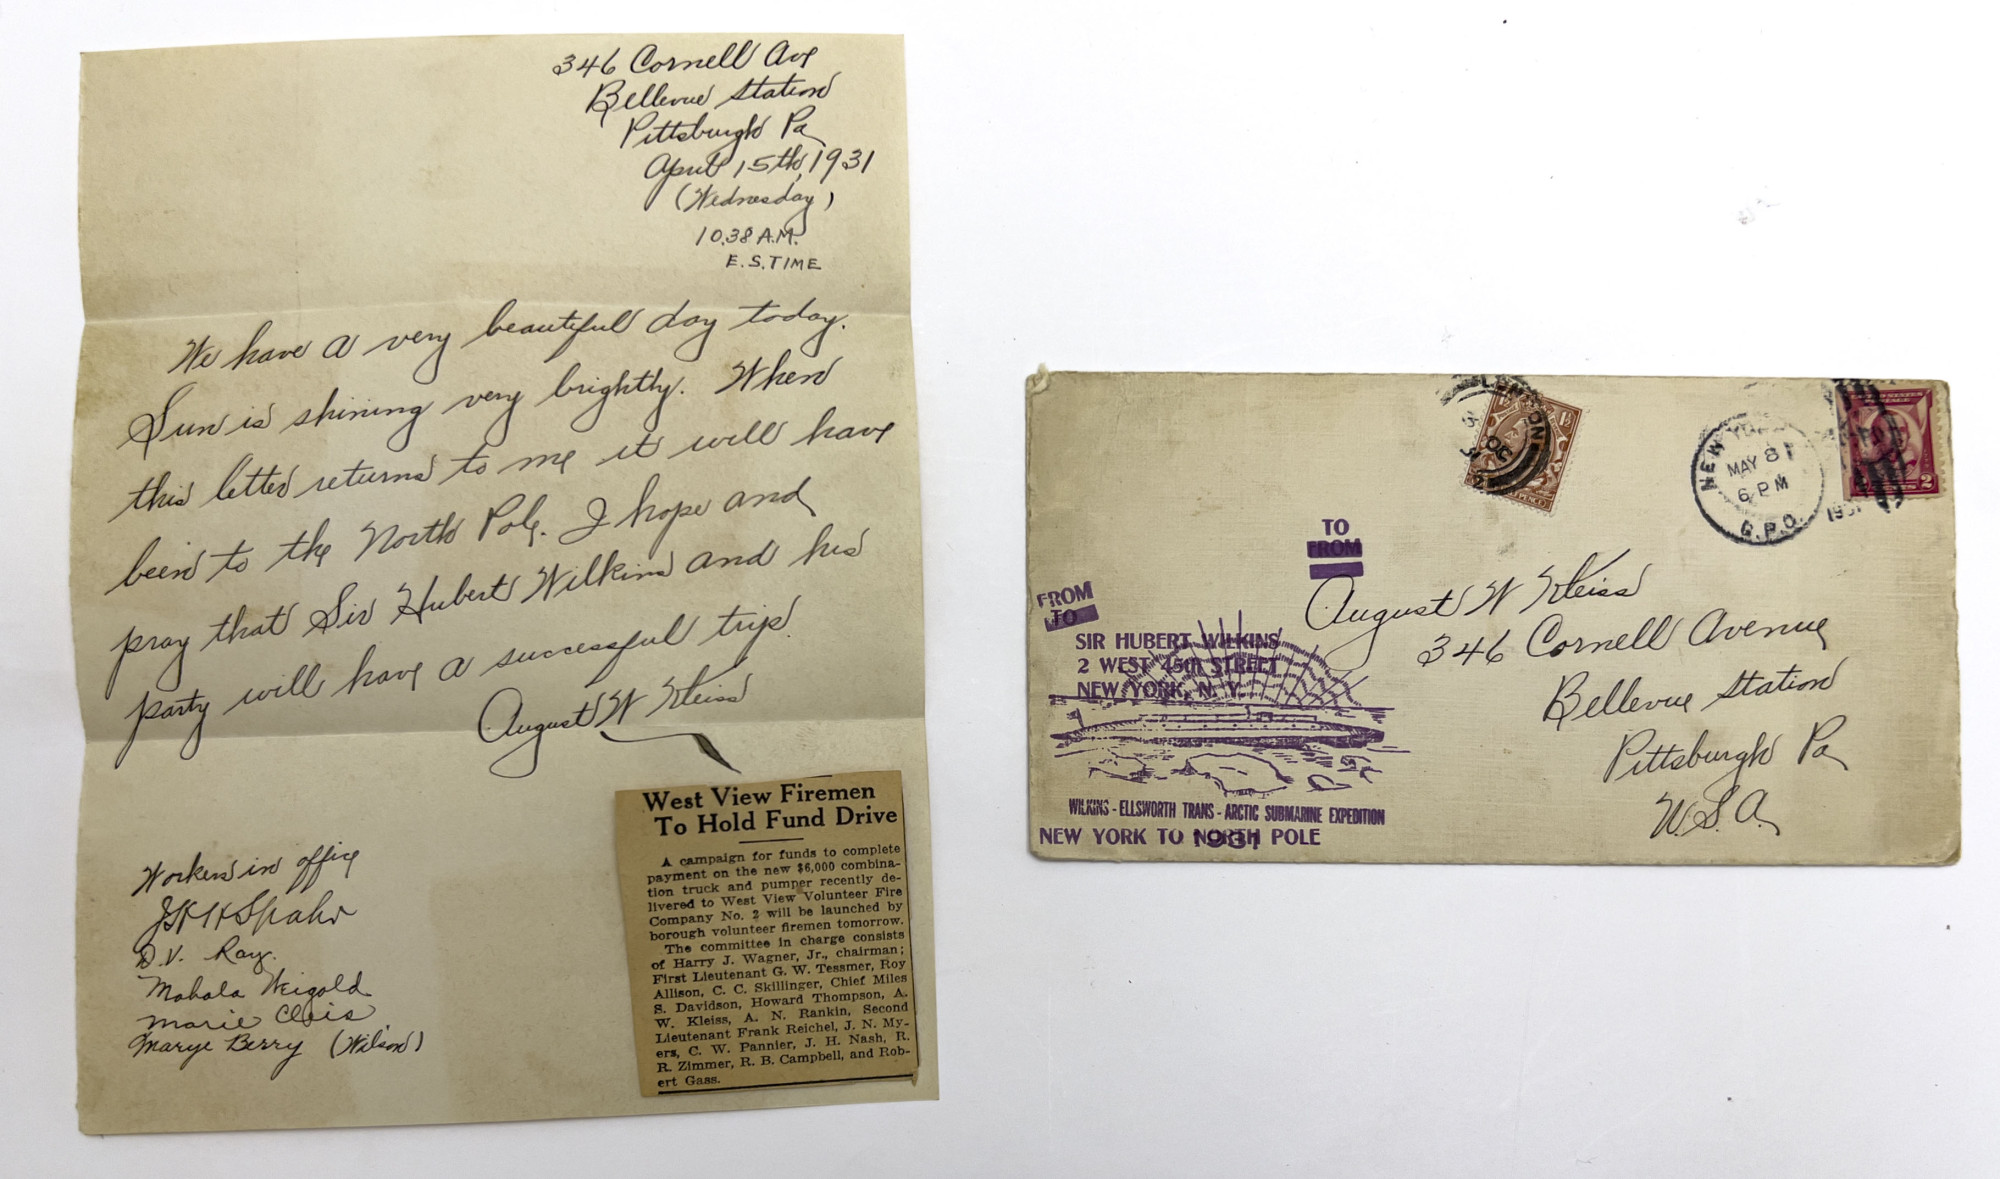 346 Cornell Ave
Bellevue Station
Pittsburgh Pa
April 15th, 1931
(Wednesday)
10.38 A.M.
E.S.TIME
We have a very beautiful day today.
Sun is shining very brightly. When
this letter returns to me it will have
been to the North Pole. I hope and
pray that Sir Hubert Wilkins and his
party will have a successful trip.
August W Kleiss
Workers in office
Spahr
D.V. Ray.
Mahala Weigold
Marie
Marye Berry (Wilson)
West View Firemen
To Hold Fund Drive
A campaign for funds to complete
payment on the new $6,000 combina-
tion truck and pumper recently de-
livered to West View Volunteer Fire
Company No. 2 will be launched by
borough volunteer firemen tomorrow.
The committee in charge consists
of Harry J. Wagner, Jr., chairman;
First Lieutenant G. W. Tessmer, Roy
Allison, C. C. Skillinger, Chief Miles
S. Davidson, Howard Thompson, A.
W. Kleiss, A. N. Rankin, Second
Lieutenant Frank Reichel, J. N. My-
ers, C. W. Pannier, J. H. Nash, R.
R. Zimmer, R. B. Campbell, and Rob-
ert Gass.
LONDON
NEW YORK
MAY 8
6 PM
G.P.O.
1931
2
TO
FROM
August W Kleiss
346 Cornell Avenue
Bellevue Station
Pittsburgh Pa
U.S.A.
FROM
TO
SIR HUBERT WILKINS
2 WEST 45th STREET
NEW YORK, N.Y.
WILKINS - ELLSWORTH TRANS - ARCTIC SUBMARINE EXPEDITION
NEW YORK TO NORTH POLE
1931